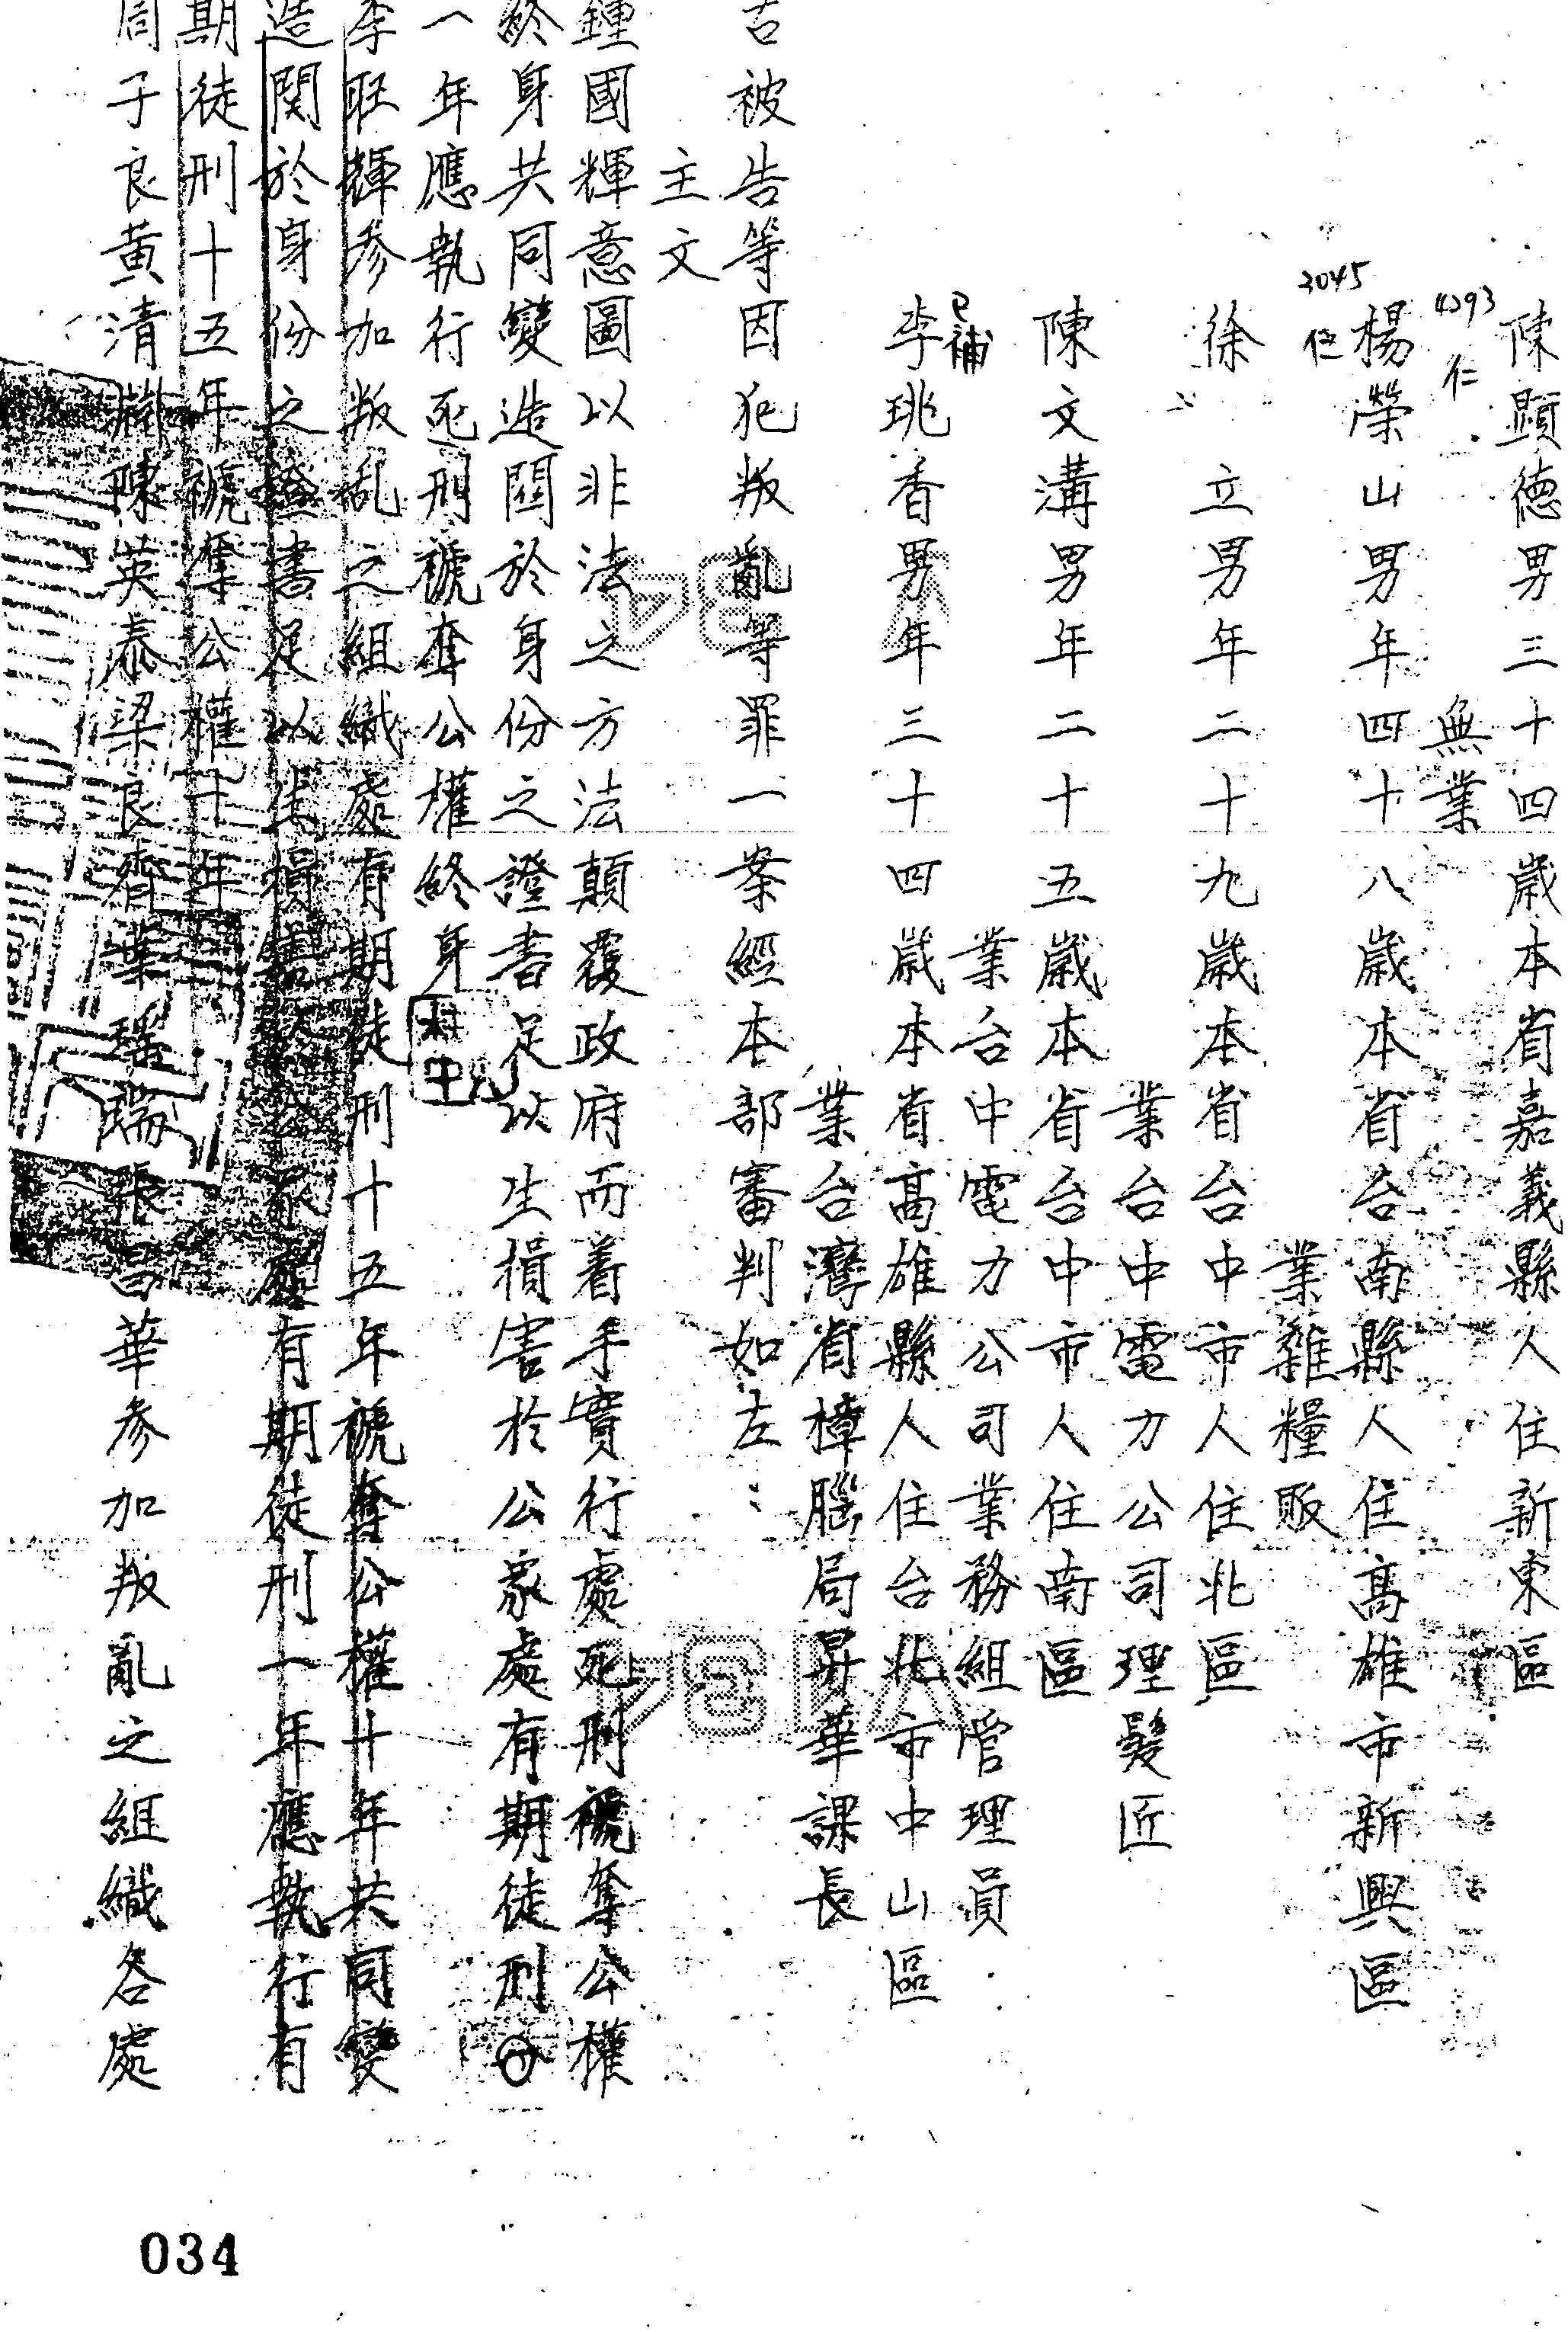 陳顯德男三十四歲本省嘉義縣人住新東區
無業
4393
仁
楊榮山男年四十八歲本省台南縣人住高雄市新興區
業雜糧販
2045
伍
徐 立男年二十九歲本省台中市人住北區
業台中電力公司理髮匠
陳文溝男年二十五歲本省台中市人住南區
業台中電力公司業務組管理員
已補
李珧香男年三十四歲本省高雄縣人住台北市中山區
業台灣省樟腦局昇華課長
右被告等因犯叛亂等罪一案經本部審判如左：
主文
鍾國輝意圖以非法之方法顛覆政府而着手實行處死刑褫奪公權
終身共同變造關於身份之證書足以生損害於公眾處有期徒刑
一年應執行死刑褫奪公權終身
李旺輝參加叛乱之組織處有期徒刑十五年褫奪公權十年共同變
造関於身份之證書足以生損害於公眾處有期徒刑一年應執行有
期徒刑十五年褫奪公權十年
周子良黃清樹陳英泰梁良齊葉瑞張昌華參加叛亂之組織各處
A134
A134
034